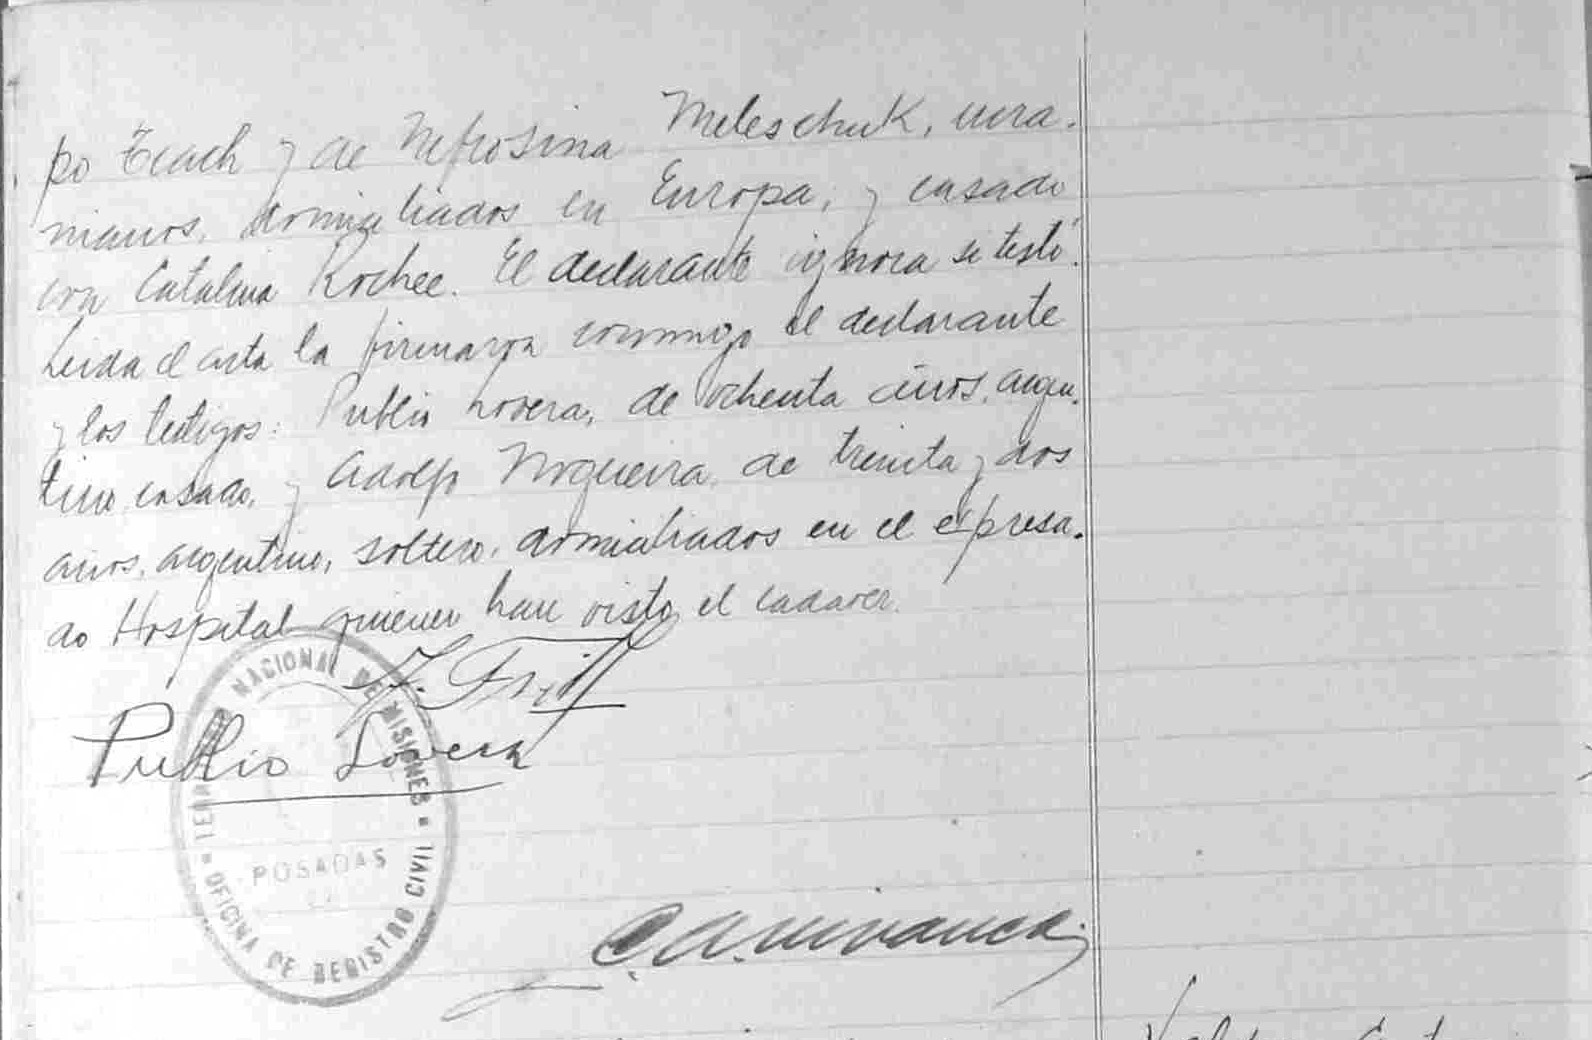 po Tcach y de Nefrosina Meleschuk, ucra-
nianos, domiciliados en Europa, y casado
con Catalina Kochee. El declarante ignora si testó.
Leida el acta la firmaron conmigo el declarante
y los testigos: Publio Lovera, de ochenta años, argen-
tino, casado, y Adolfo Nogueira, de treinta y dos
años, argentino, soltero, domiciliados en el expresa-
do Hospital quienes han visto el cadaver.
Publio Lovera
TERRITORIO NACIONAL DE MISIONES
POSADAS
OFICINA DE REGISTRO CIVIL